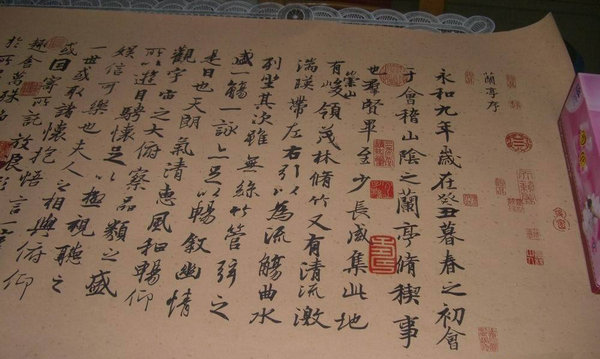 蘭亭序
永和九年歲在癸丑暮春之初會
于會稽山陰之蘭亭脩稧事
也群賢畢至少長咸集此地
有崇山峻領茂林脩竹又有清流激
湍暎帶左右引以為流觴曲水
列坐其次雖無絲竹管弦之
盛一觴一詠亦足以暢敘幽情
是日也天朗氣清惠風和暢仰
觀宇宙之大俯察品類之盛
所以遊目騁懷足以極視聽之
娛信可樂也夫人之相與俯仰
一世或取諸懷抱悟言一室
或因寄所託放浪形
趣舍萬殊
於所